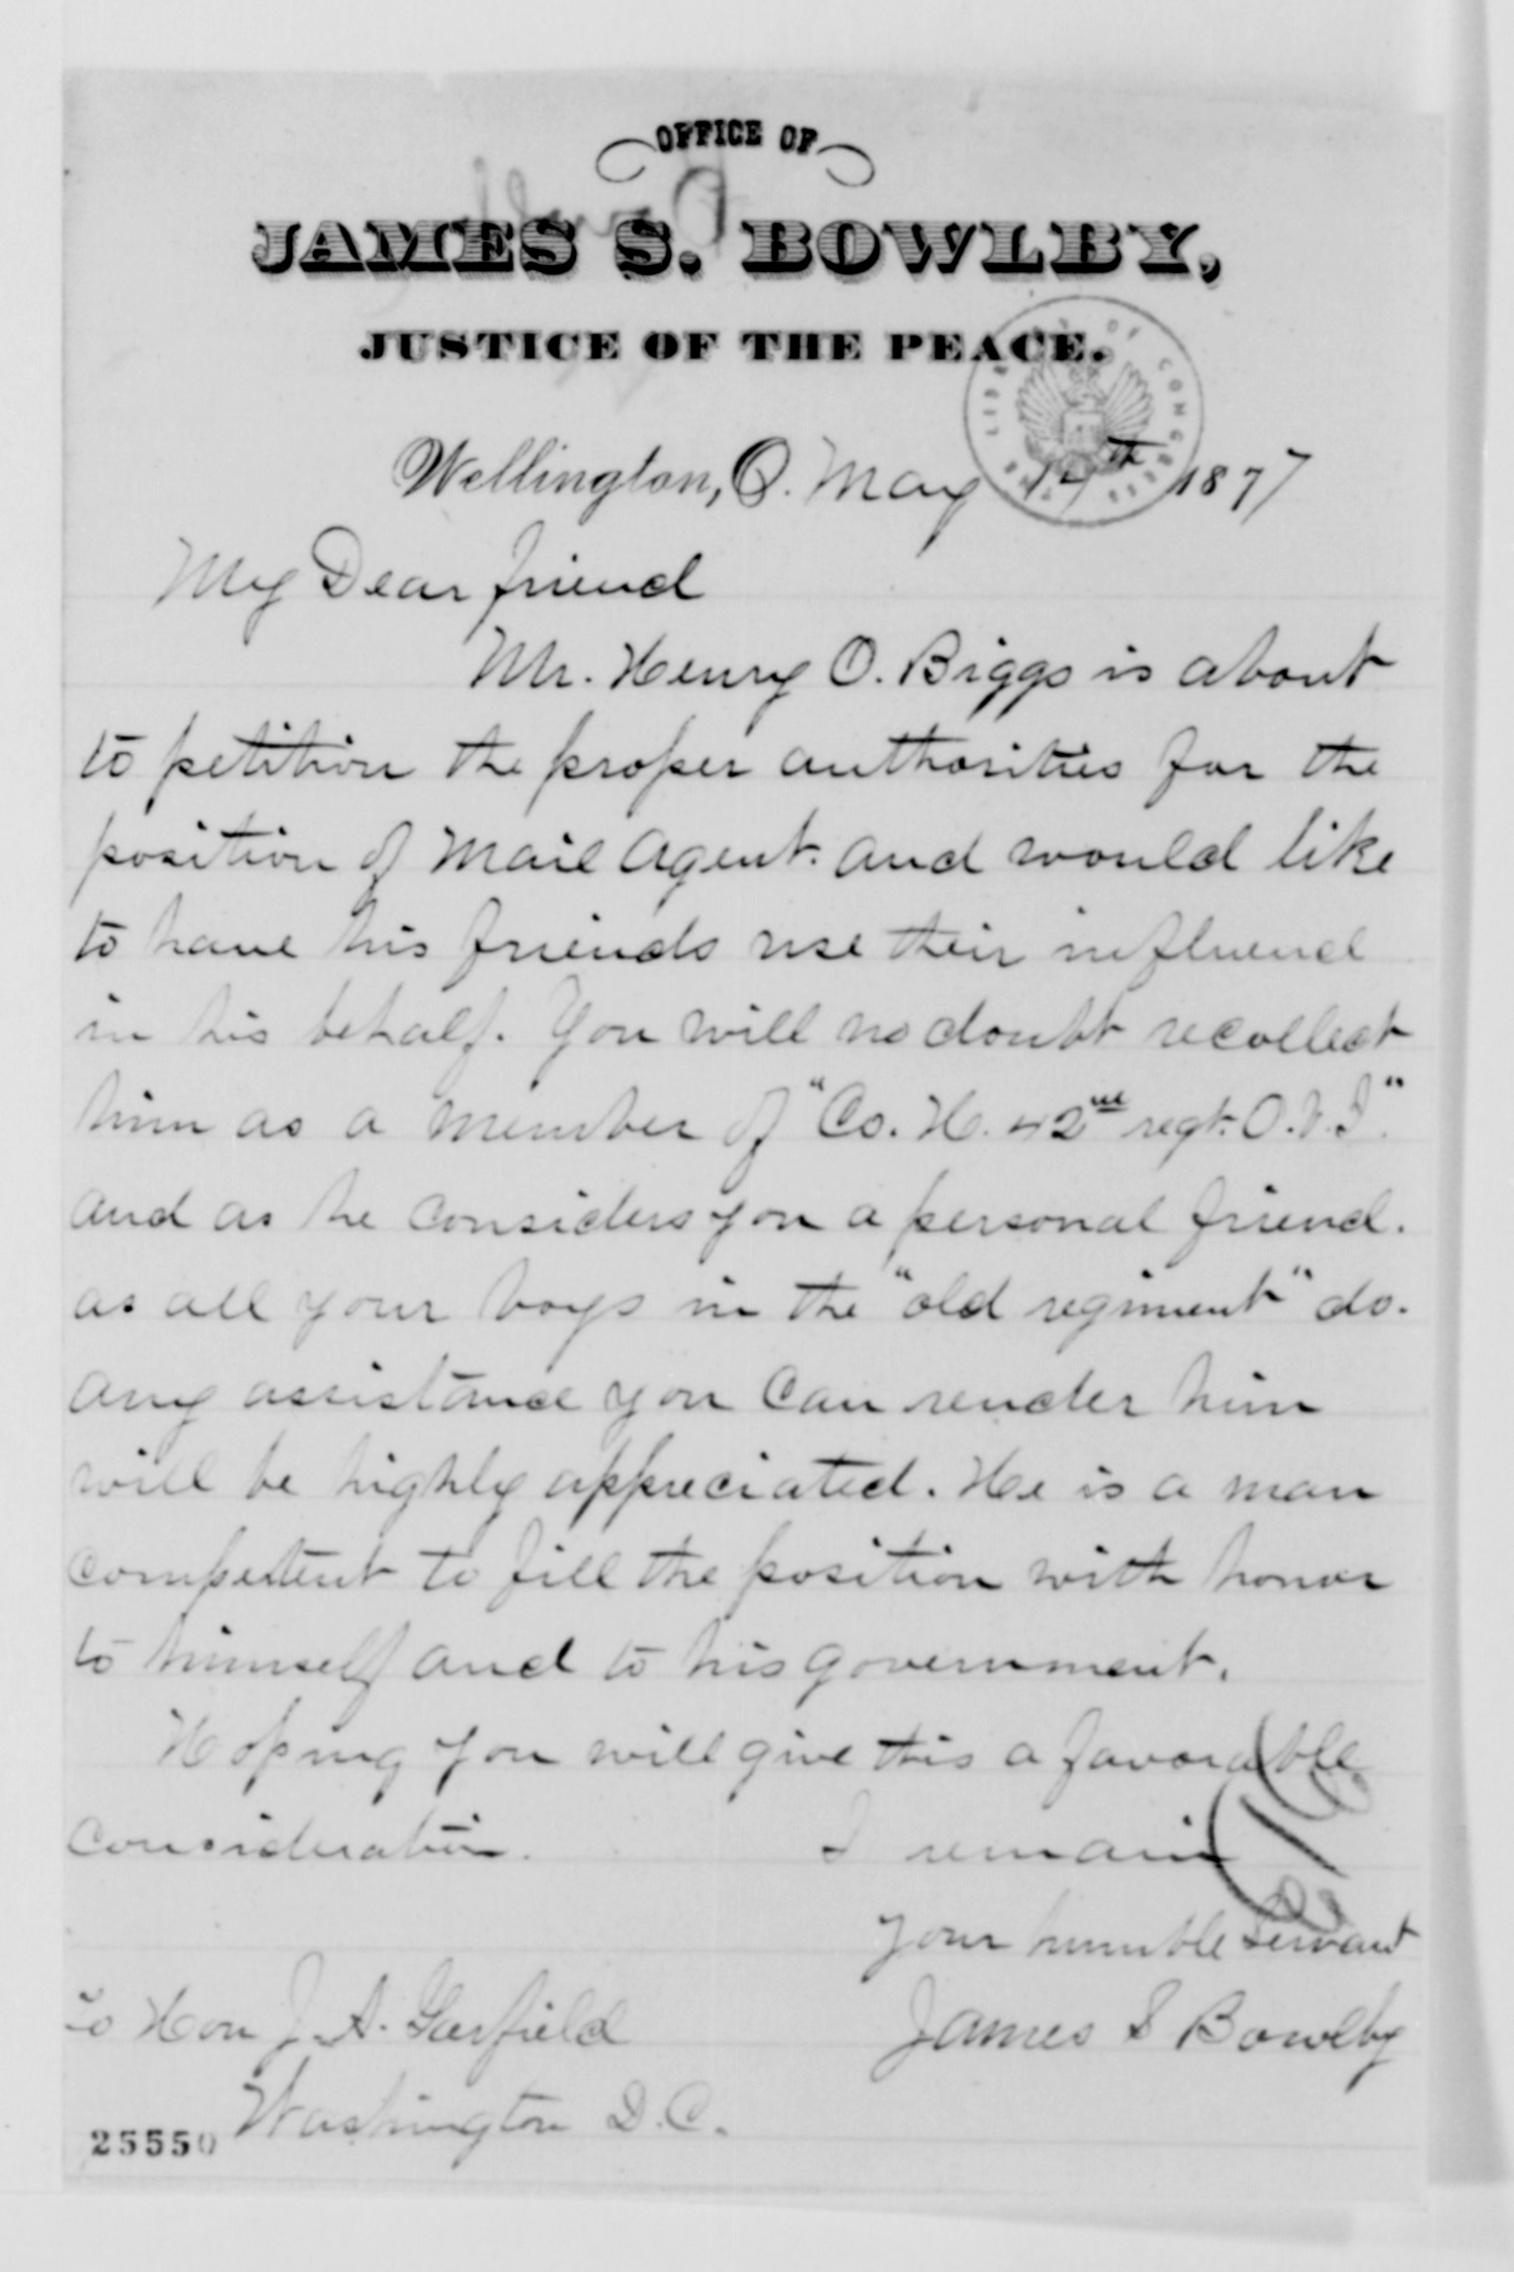 OFFICE OF
JAMES S. BOWLBY,
JUSTICE OF THE PEACE.
LIBRARY OF CONGRESS
Wellington, O. May 1877
My Dear friend
Mr. Henry O. Biggs is about
to petition the proper authorities for the
position of Mail Agent. and would like
to have his friends use their influence
in his behalf. You will no doubt recollect
him as a member of "Co. H. 42nd regt. O.V.I."
and as he considers you a personal friend.
as all your boys in the "old regiment" do.
any assistance you can render him
will be highly appreciated. He is a man
competent to fill the position with honor
to himself and to his government.
Hoping you will give this a favorable
consideration. I remain
your humble servant
To Hon J. A. Garfield James S Bowlby
Washington D.C.
25550